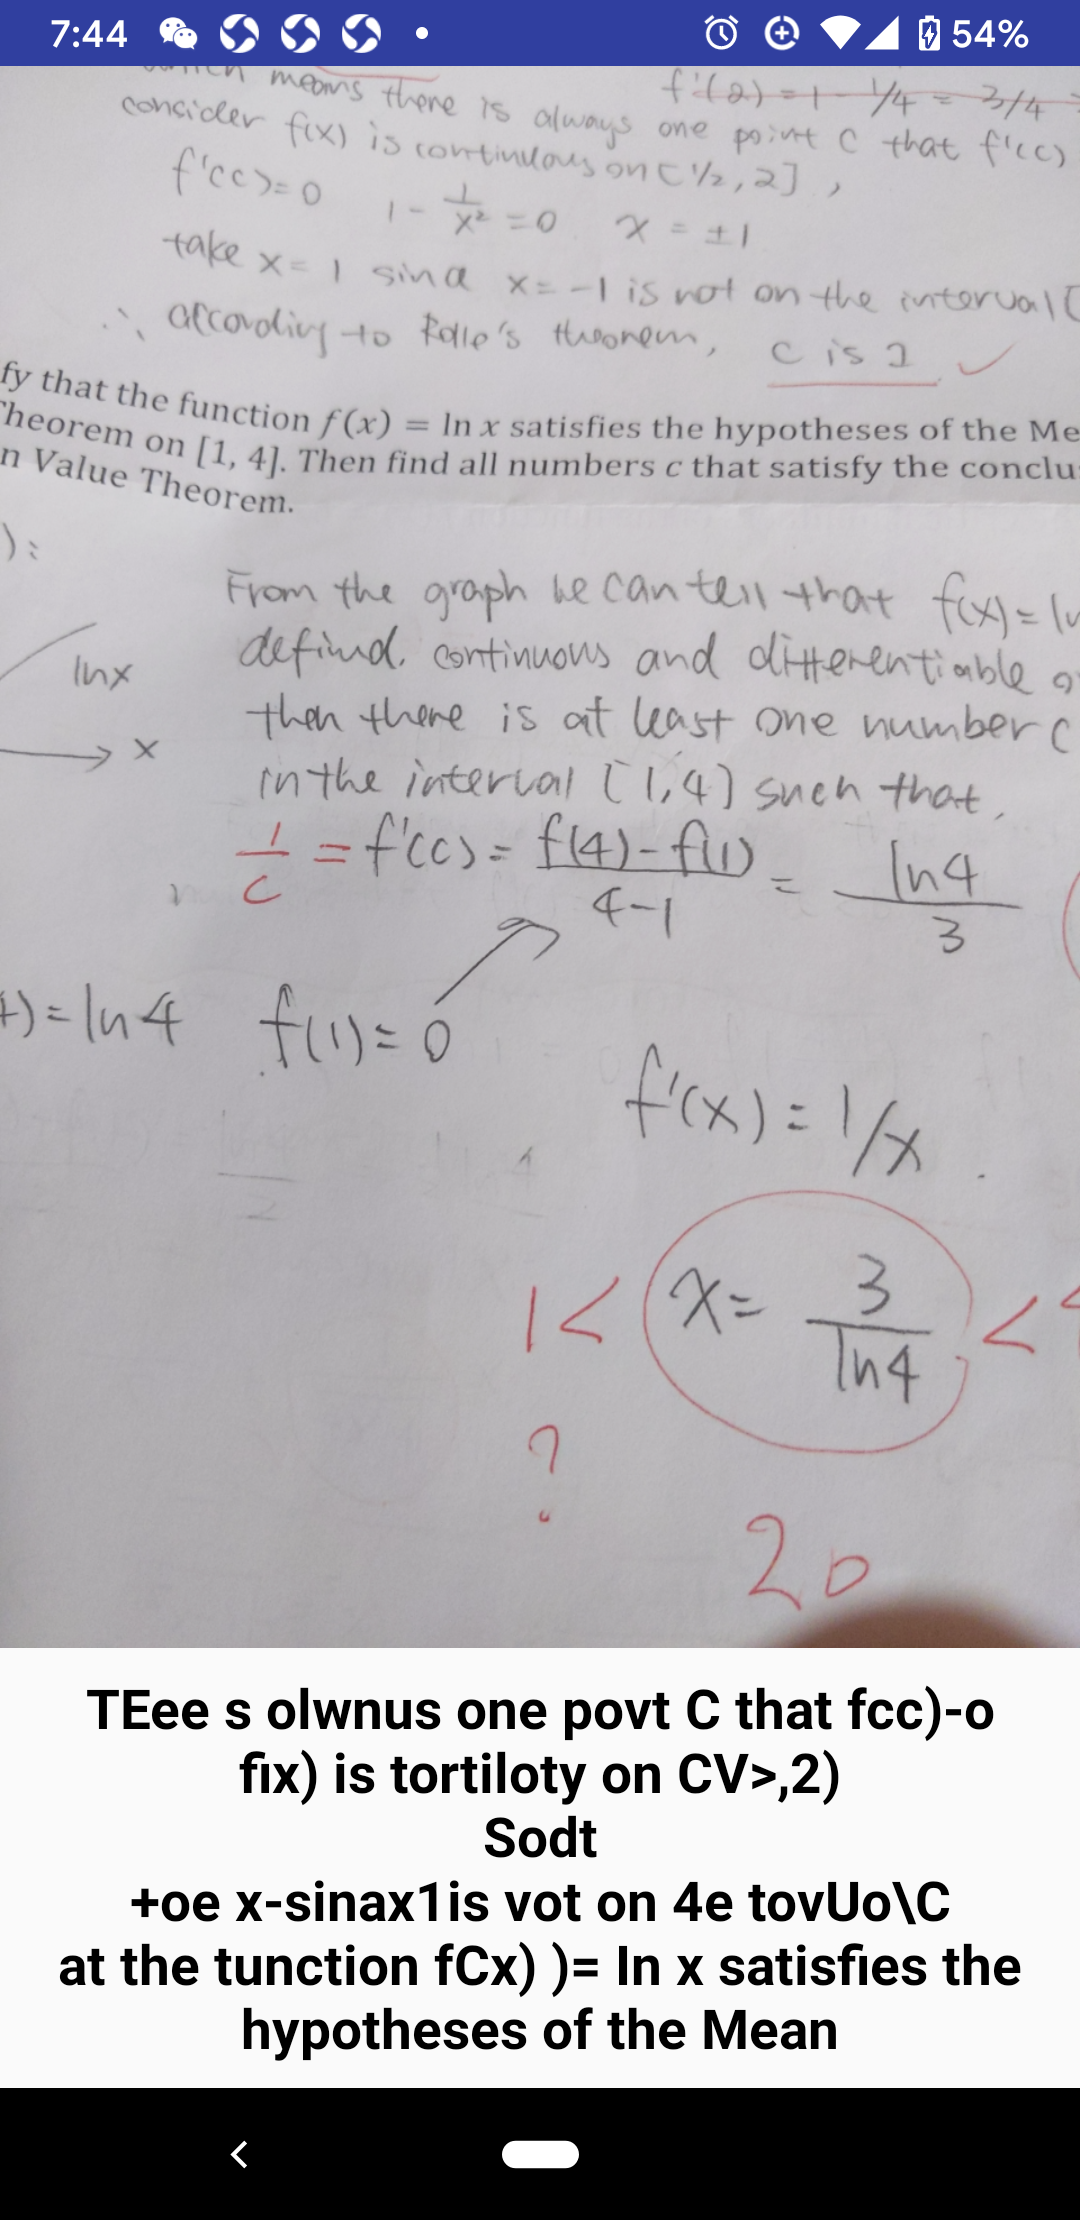 7:44
54%
means there is always one point C that f'(c)
f'(2) = 1 - 1/4 = 3/4
consider f(x) is continuous on [1/2, 2],
f'(c)=0 1 - 1/x² = 0 x = ±1
take x = 1 since x = -1 is not on the interval [
∴ according to Rolle's theorem, c is 1 ✓
fy that the function f(x) = ln x satisfies the hypotheses of the Me
Theorem on [1, 4]. Then find all numbers c that satisfy the conclu
n Value Theorem.
):
From the graph we can tell that f(x) = ln
lnx
defind, continuous and differentiable o
then there is at least one number c
x
in the interval [1,4] such that,
1/c = f'(c) = f(4)-f(1)/4-1 = ln4/3
4) = ln4 f(1) = 0
f'(x) = 1/x.
1 < x = 3/ln4 <
?
20
TEee s olwnus one povt C that fcc)-o
fix) is tortiloty on CV>,2)
Sodt
+oe x-sinax1is vot on 4e tovUo\C
at the tunction fCx) )= In x satisfies the
hypotheses of the Mean